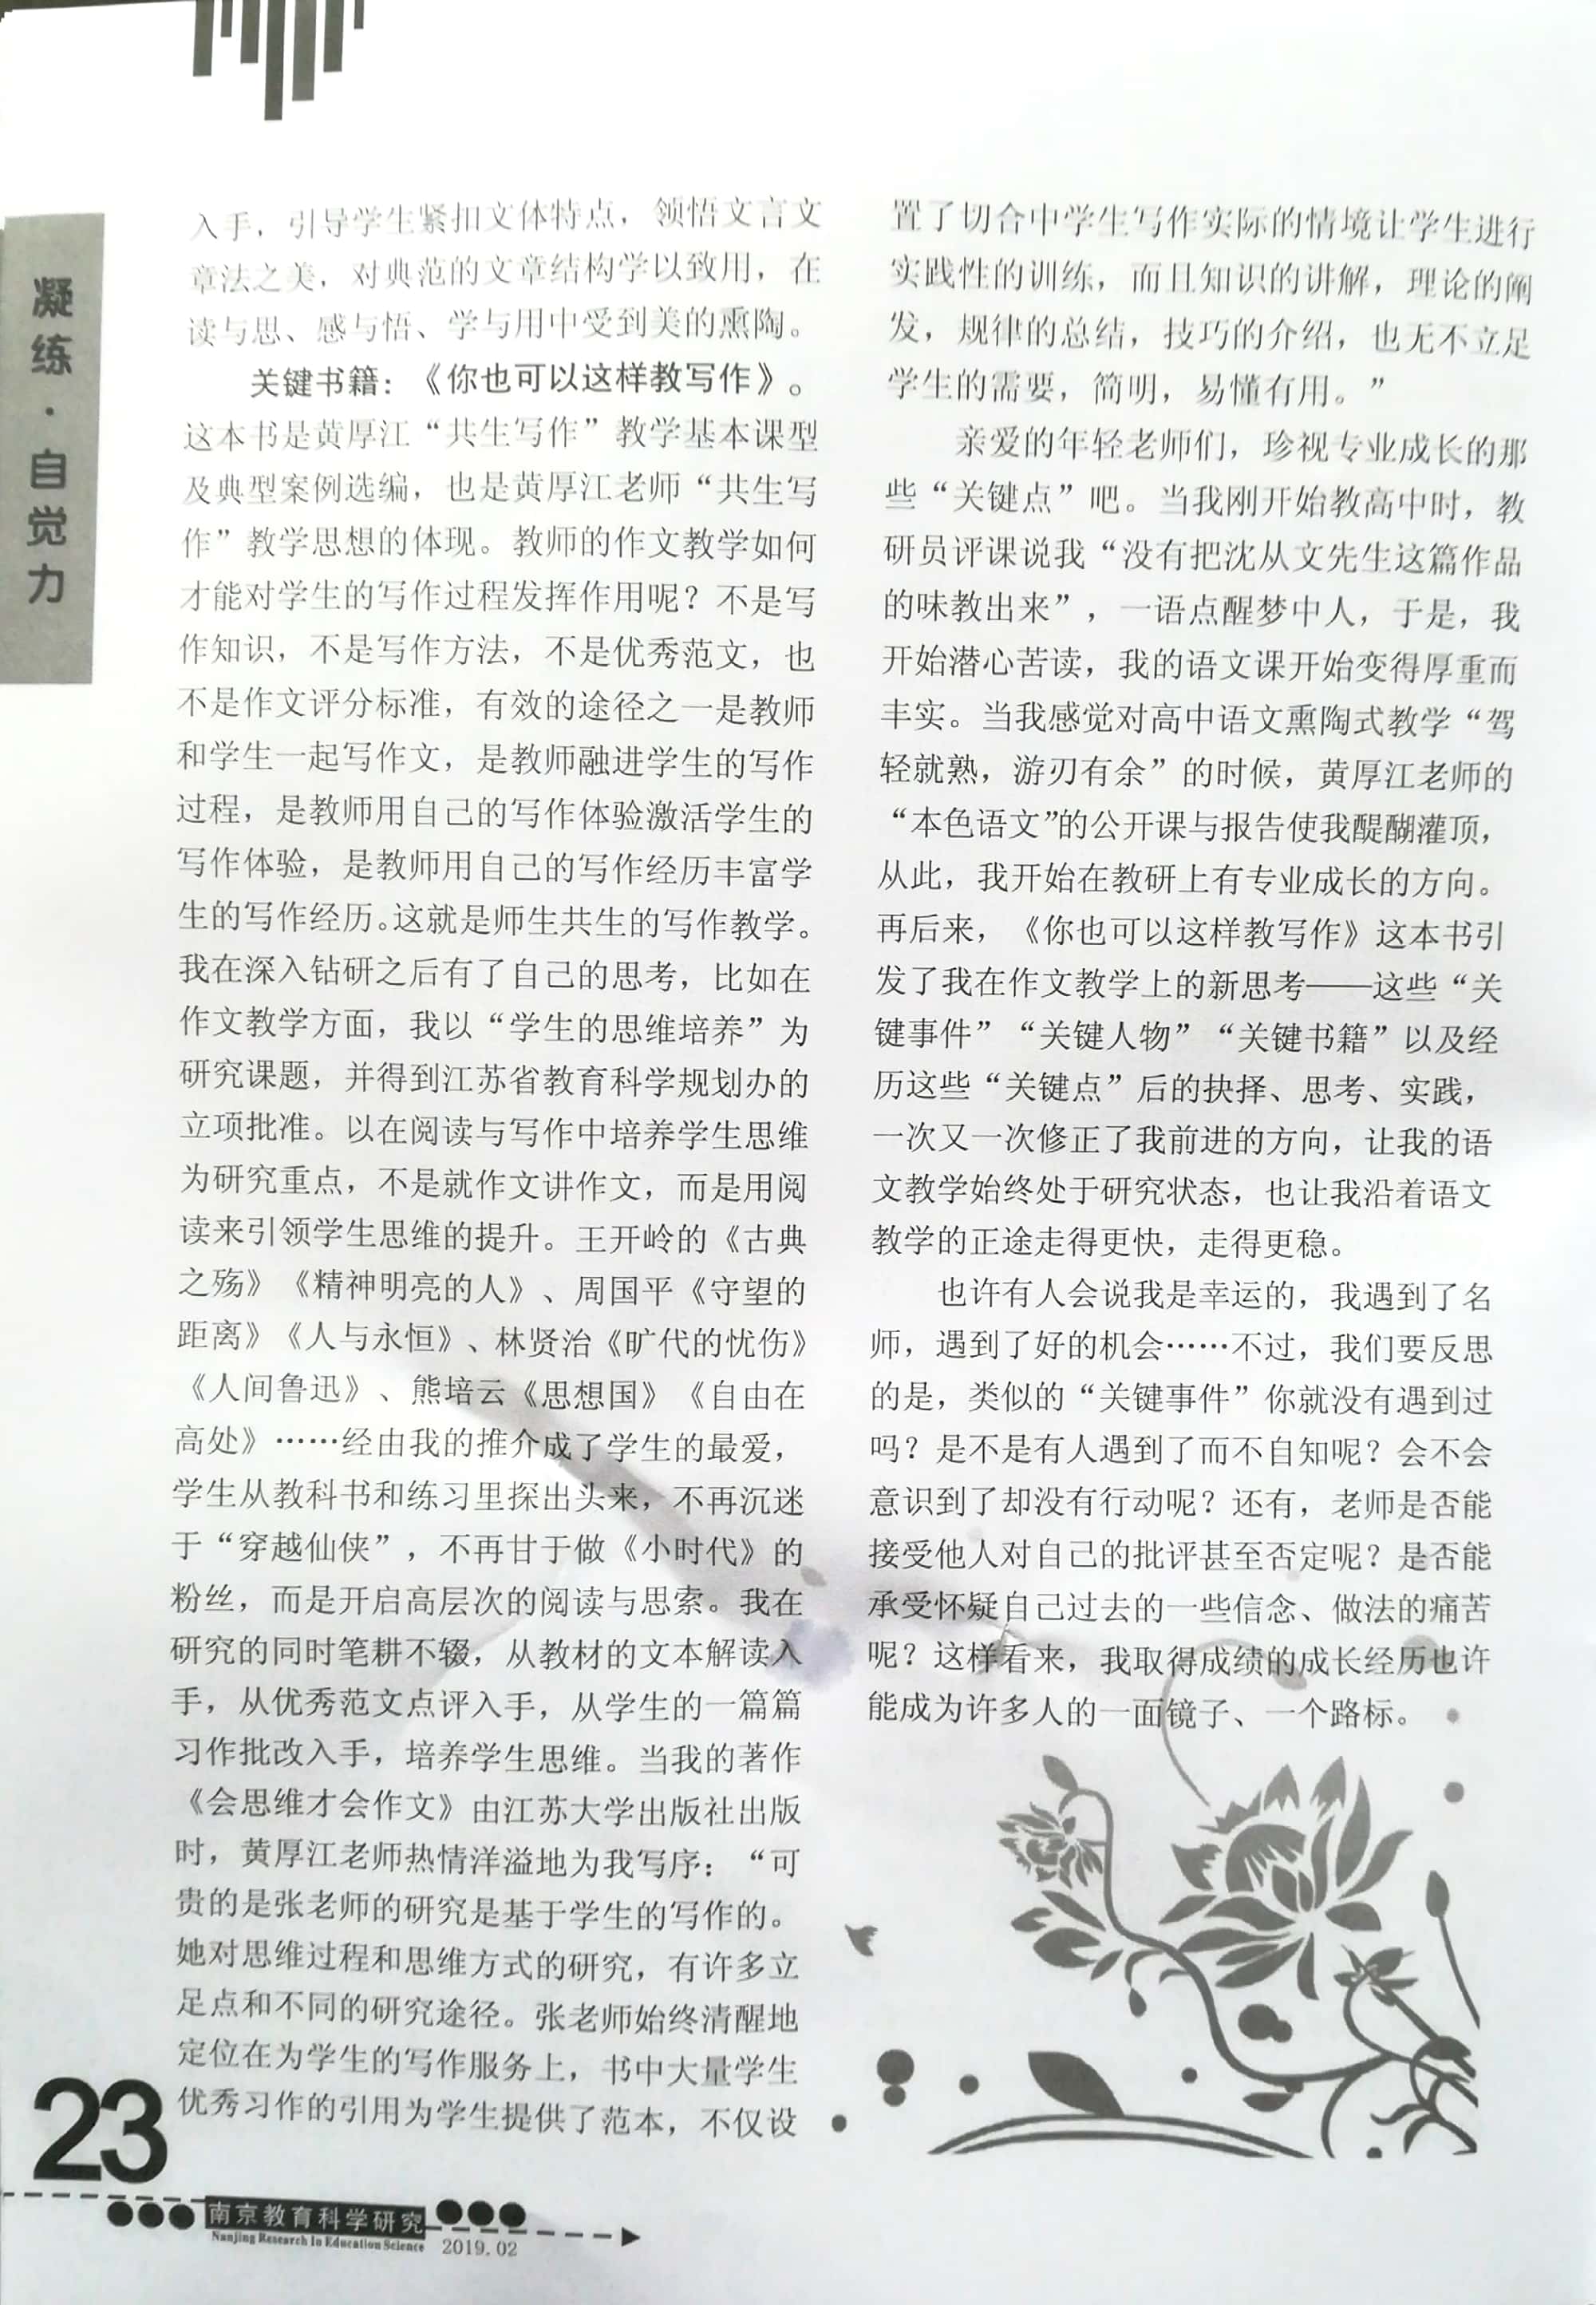 凝练·自觉力
入手，引导学生紧扣文体特点，领悟文言文
章法之美，对典范的文章结构学以致用，在
读与思、感与悟、学与用中受到美的熏陶。
关键书籍：《你也可以这样教写作》。
这本书是黄厚江“共生写作”教学基本课型
及典型案例选编，也是黄厚江老师“共生写
作”教学思想的体现。教师的作文教学如何
才能对学生的写作过程发挥作用呢？不是写
作知识，不是写作方法，不是优秀范文，也
不是作文评分标准，有效的途径之一是教师
和学生一起写作文，是教师融进学生的写作
过程，是教师用自己的写作体验激活学生的
写作体验，是教师用自己的写作经历丰富学
生的写作经历。这就是师生共生的写作教学。
我在深入钻研之后有了自己的思考，比如在
作文教学方面，我以“学生的思维培养”为
研究课题，并得到江苏省教育科学规划办的
立项批准。以在阅读与写作中培养学生思维
为研究重点，不是就作文讲作文，而是用阅
读来引领学生思维的提升。王开岭的《古典
之殇》《精神明亮的人》、周国平《守望的
距离》《人与永恒》、林贤治《旷代的忧伤》
《人间鲁迅》、熊培云《思想国》《自由在
高处》……经由我的推介成了学生的最爱，
学生从教科书和练习里探出头来，不再沉迷
于“穿越仙侠”，不再甘于做《小时代》的
粉丝，而是开启高层次的阅读与思索。我在
研究的同时笔耕不辍，从教材的文本解读入
手，从优秀范文点评入手，从学生的一篇篇
习作批改入手，培养学生思维。当我的著作
《会思维才会作文》由江苏大学出版社出版
时，黄厚江老师热情洋溢地为我写序：“可
贵的是张老师的研究是基于学生的写作的。
她对思维过程和思维方式的研究，有许多立
足点和不同的研究途径。张老师始终清醒地
定位在为学生的写作服务上，书中大量学生
优秀习作的引用为学生提供了范本，不仅设
置了切合中学生写作实际的情境让学生进行
实践性的训练，而且知识的讲解，理论的阐
发，规律的总结，技巧的介绍，也无不立足
学生的需要，简明，易懂有用。”
亲爱的年轻老师们，珍视专业成长的那
些“关键点”吧。当我刚开始教高中时，教
研员评课说我“没有把沈从文先生这篇作品
的味教出来”，一语点醒梦中人，于是，我
开始潜心苦读，我的语文课开始变得厚重而
丰实。当我感觉对高中语文熏陶式教学“驾
轻就熟，游刃有余”的时候，黄厚江老师的
“本色语文”的公开课与报告使我醍醐灌顶，
从此，我开始在教研上有专业成长的方向。
再后来，《你也可以这样教写作》这本书引
发了我在作文教学上的新思考——这些“关
键事件”“关键人物”“关键书籍”以及经
历这些“关键点”后的抉择、思考、实践，
一次又一次修正了我前进的方向，让我的语
文教学始终处于研究状态，也让我沿着语文
教学的正途走得更快，走得更稳。
也许有人会说我是幸运的，我遇到了名
师，遇到了好的机会……不过，我们要反思
的是，类似的“关键事件”你就没有遇到过
吗？是不是有人遇到了而不自知呢？会不会
意识到了却没有行动呢？还有，老师是否能
接受他人对自己的批评甚至否定呢？是否能
承受怀疑自己过去的一些信念、做法的痛苦
呢？这样看来，我取得成绩的成长经历也许
能成为许多人的一面镜子、一个路标。
23
南京教育科学研究
Nanjing Research In Education Science
2019.02